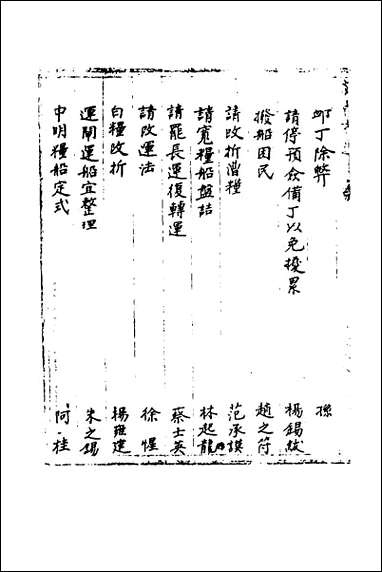 邺丁除弊 孫
請停預僉備丁以免擾累 楊錫紱
撥船困民 趙之符
請改折漕糧 范承謨
請寬糧船盤詰 林起龍
請罷長運復轉運 蔡士英
請改運法 徐惺
白糧改折 楊雍建
運閘運船宜整理 朱之錫
申明糧船定式 阿桂